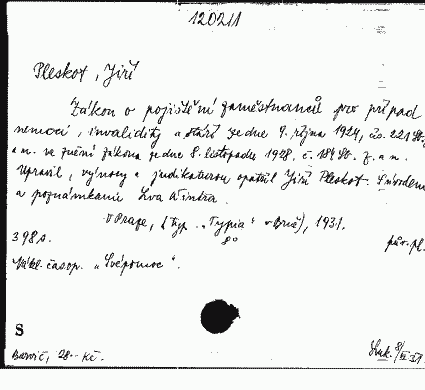 120211
Pleskot, Jiří
Zákon o pojištění zaměstnanců pro případ
nemoci, invalidity a stáří ze dne 9. října 1924, čs. 221 Sb. z.
a n. ve znění zákona ze dne 8. listopadu 1928, č. 184 Sb. z. a n.
Upravil, výnosy a judikaturou opatřil Jiří Pleskot. S úvodem
a poznámkami Lva Wintra.
V Praze, (typ. „Typia“ v Brně), 1931.
8°
398 s.
pův. pl.
Nákl. časop. „Svépomoc“.
S
Barvič, 28.- Kč.